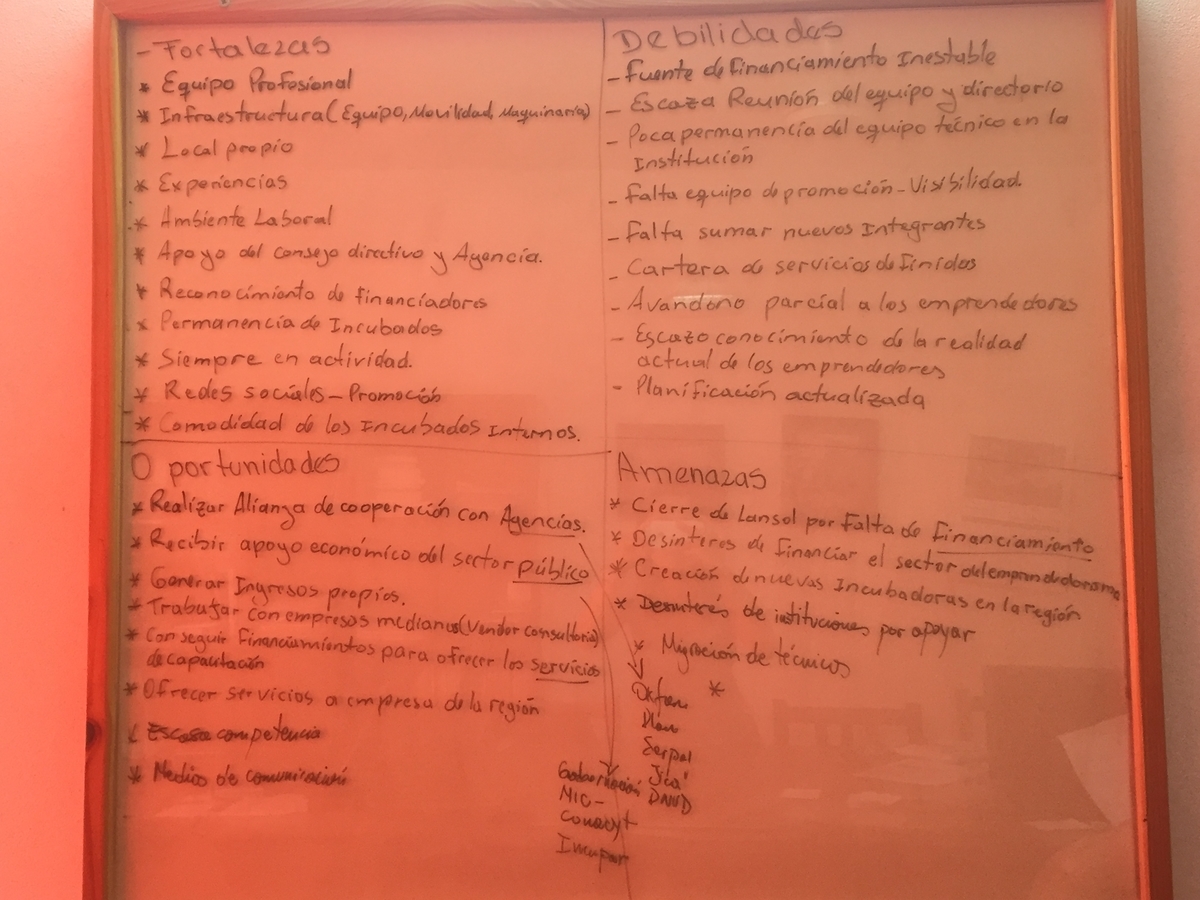 - Fortalezas
* Equipo Profesional
* Infraestructura (Equipo, Movilidad, Maquinaria)
* Local propio
* Experiencias
* Ambiente Laboral
* Apoyo del consejo directivo y Agencia.
* Reconocimiento de financiadores
* Permanencia de Incubados
* Siempre en actividad.
* Redes sociales - Promoción
* Comodidad de los Incubados Internos.
Debilidades
- Fuente de financiamiento Inestable
- Escaza Reunión del equipo y directorio
- Poca permanencia del equipo técnico en la
Institución
- Falta equipo de promoción - Visibilidad.
- Falta sumar nuevos Integrantes
- Cartera de servicios definidas
- Avandono parcial a los emprendedores
- Escazo conocimiento de la realidad
actual de los emprendedores
- Planificación actualizada
Oportunidades
* Realizar Alianza de cooperación con Agencias.
* Recibir apoyo económico del sector público
* Generar Ingresos propios.
* Trabajar con empresas medianas (Vender consultoria)
* Conseguir Financiamientos para ofrecer los servicios
de capacitación
* Ofrecer servicios a empresa de la región
* Escasa competencia
* Medios de comunicación
Gobernación
MIC-
Conacyt
Incupar
Amenazas
* Cierre de Lansol por Falta de Financiamiento
* Desinteres de Financiar el sector del emprendedorismo
* Creación de nuevas Incubadoras en la región
* Desinterés de instituciones por apoyar
* Migración de técnicos
*
Oxfam
Plan
Serpaj
Jica
PNUD